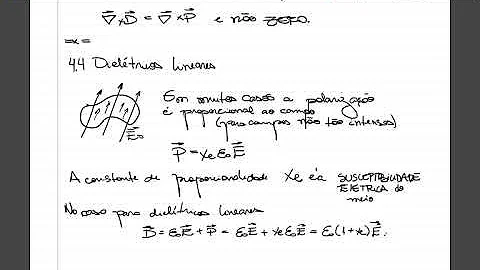 ∇⃗×D⃗ = ∇⃗×P⃗ e não zero.
=x=
4.4 Dielétricos lineares
Em muitos casos a polarização
é proporcional ao campo
(para campos não tão intensos)
E⃗₀
P⃗ = χₑ ε₀ E⃗
A constante de proporcionalidade χₑ é a SUSCEPTIBILIDADE
ELÉTRICA do
meio
No caso para dielétricos lineares
D⃗ = ε₀E⃗ + P⃗ = ε₀E⃗ + χₑε₀E⃗ = ε₀(1+χₑ)E⃗.